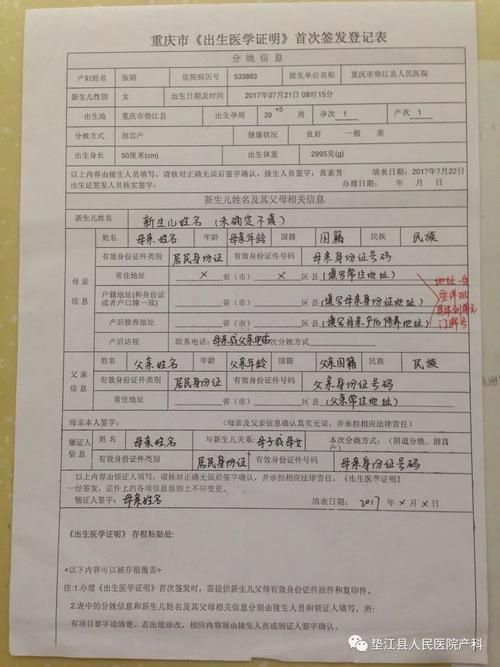 重庆市《出生医学证明》首次签发登记表
分娩信息
产妇姓名 张娟 住院病历号 533893 接生单位名称 重庆市垫江县人民医院
新生儿性别 女 出生日期及时间 2017年07月21日08时15分
出生地 重庆市垫江县 出生孕周 39+5周 孕次 1 产次 1
分娩方式 剖宫产 健康状况 良好 一般 差
出生身长 50厘米(cm) 出生体重 2995克(g)
以上内容由接生人员填写,请核对正确无误后签字确认,接生人员签字:黄素芳 填表日期:2017年7月22日
出生证签发人员核实签字: 办理日期: 年 月 日
新生儿姓名及其父母相关信息
新生儿姓名 新生儿姓名(未确定不填)
母亲信息
姓名 母亲姓名 年龄 母亲年龄 国籍 国籍 民族 民族
有效身份证件类别 居民身份证 有效身份证件号码 母亲身份证号码
常住地址 X 省(市) X 区县(填写常住地址)
户籍地址(和身份证或者户口簿一致) 省(市) 区县(填写母亲身份证地址)
产后修养地址 省(市) 区县(填写母亲产后修养地址)
地址一定
要详细
具体到单元
门牌号
产后访视 联系电话:母亲或父亲电话 本次分娩方式
父亲信息
姓名 父亲姓名 年龄 父亲年龄 国籍 父亲国籍 民族 民族
有效身份证件类别 居民身份证 有效身份证件号码 父亲身份证号码
常住地址 省(市) 区县(父亲常住地址)
母亲本人签字: (母亲及父亲信息确认真实无误,并承担相应法律责任)
领证人信息
姓名 母亲姓名 与新生儿关系:母子或母女 本次分娩方式:(阴道分娩、剖宫产)
有效身份证件类别 居民身份证 有效身份证件号码 母亲身份证号码
以上内容由领证人填写,请核对正确无误后签字确认,并承担相应法律责任,《出生医学证明》
一经签发,证件上的各项信息原则上不应变更。
领证人签字:母亲姓名 填表日期:2017年X月X日
《出生医学证明》存根粘贴处:
<以下内容可以被存根覆盖>
注:1.办理《出生医学证明》首次签发时,需提供新生儿父母有效身份证件原件和复印件。
2.表中的分娩信息和新生儿姓名及其父母相关信息分别由接生人员和领证人填写,所
有项目要字迹清楚,若出现涂改,相应内容须由接生人员或领证人签字确认。
垫江县人民医院产科